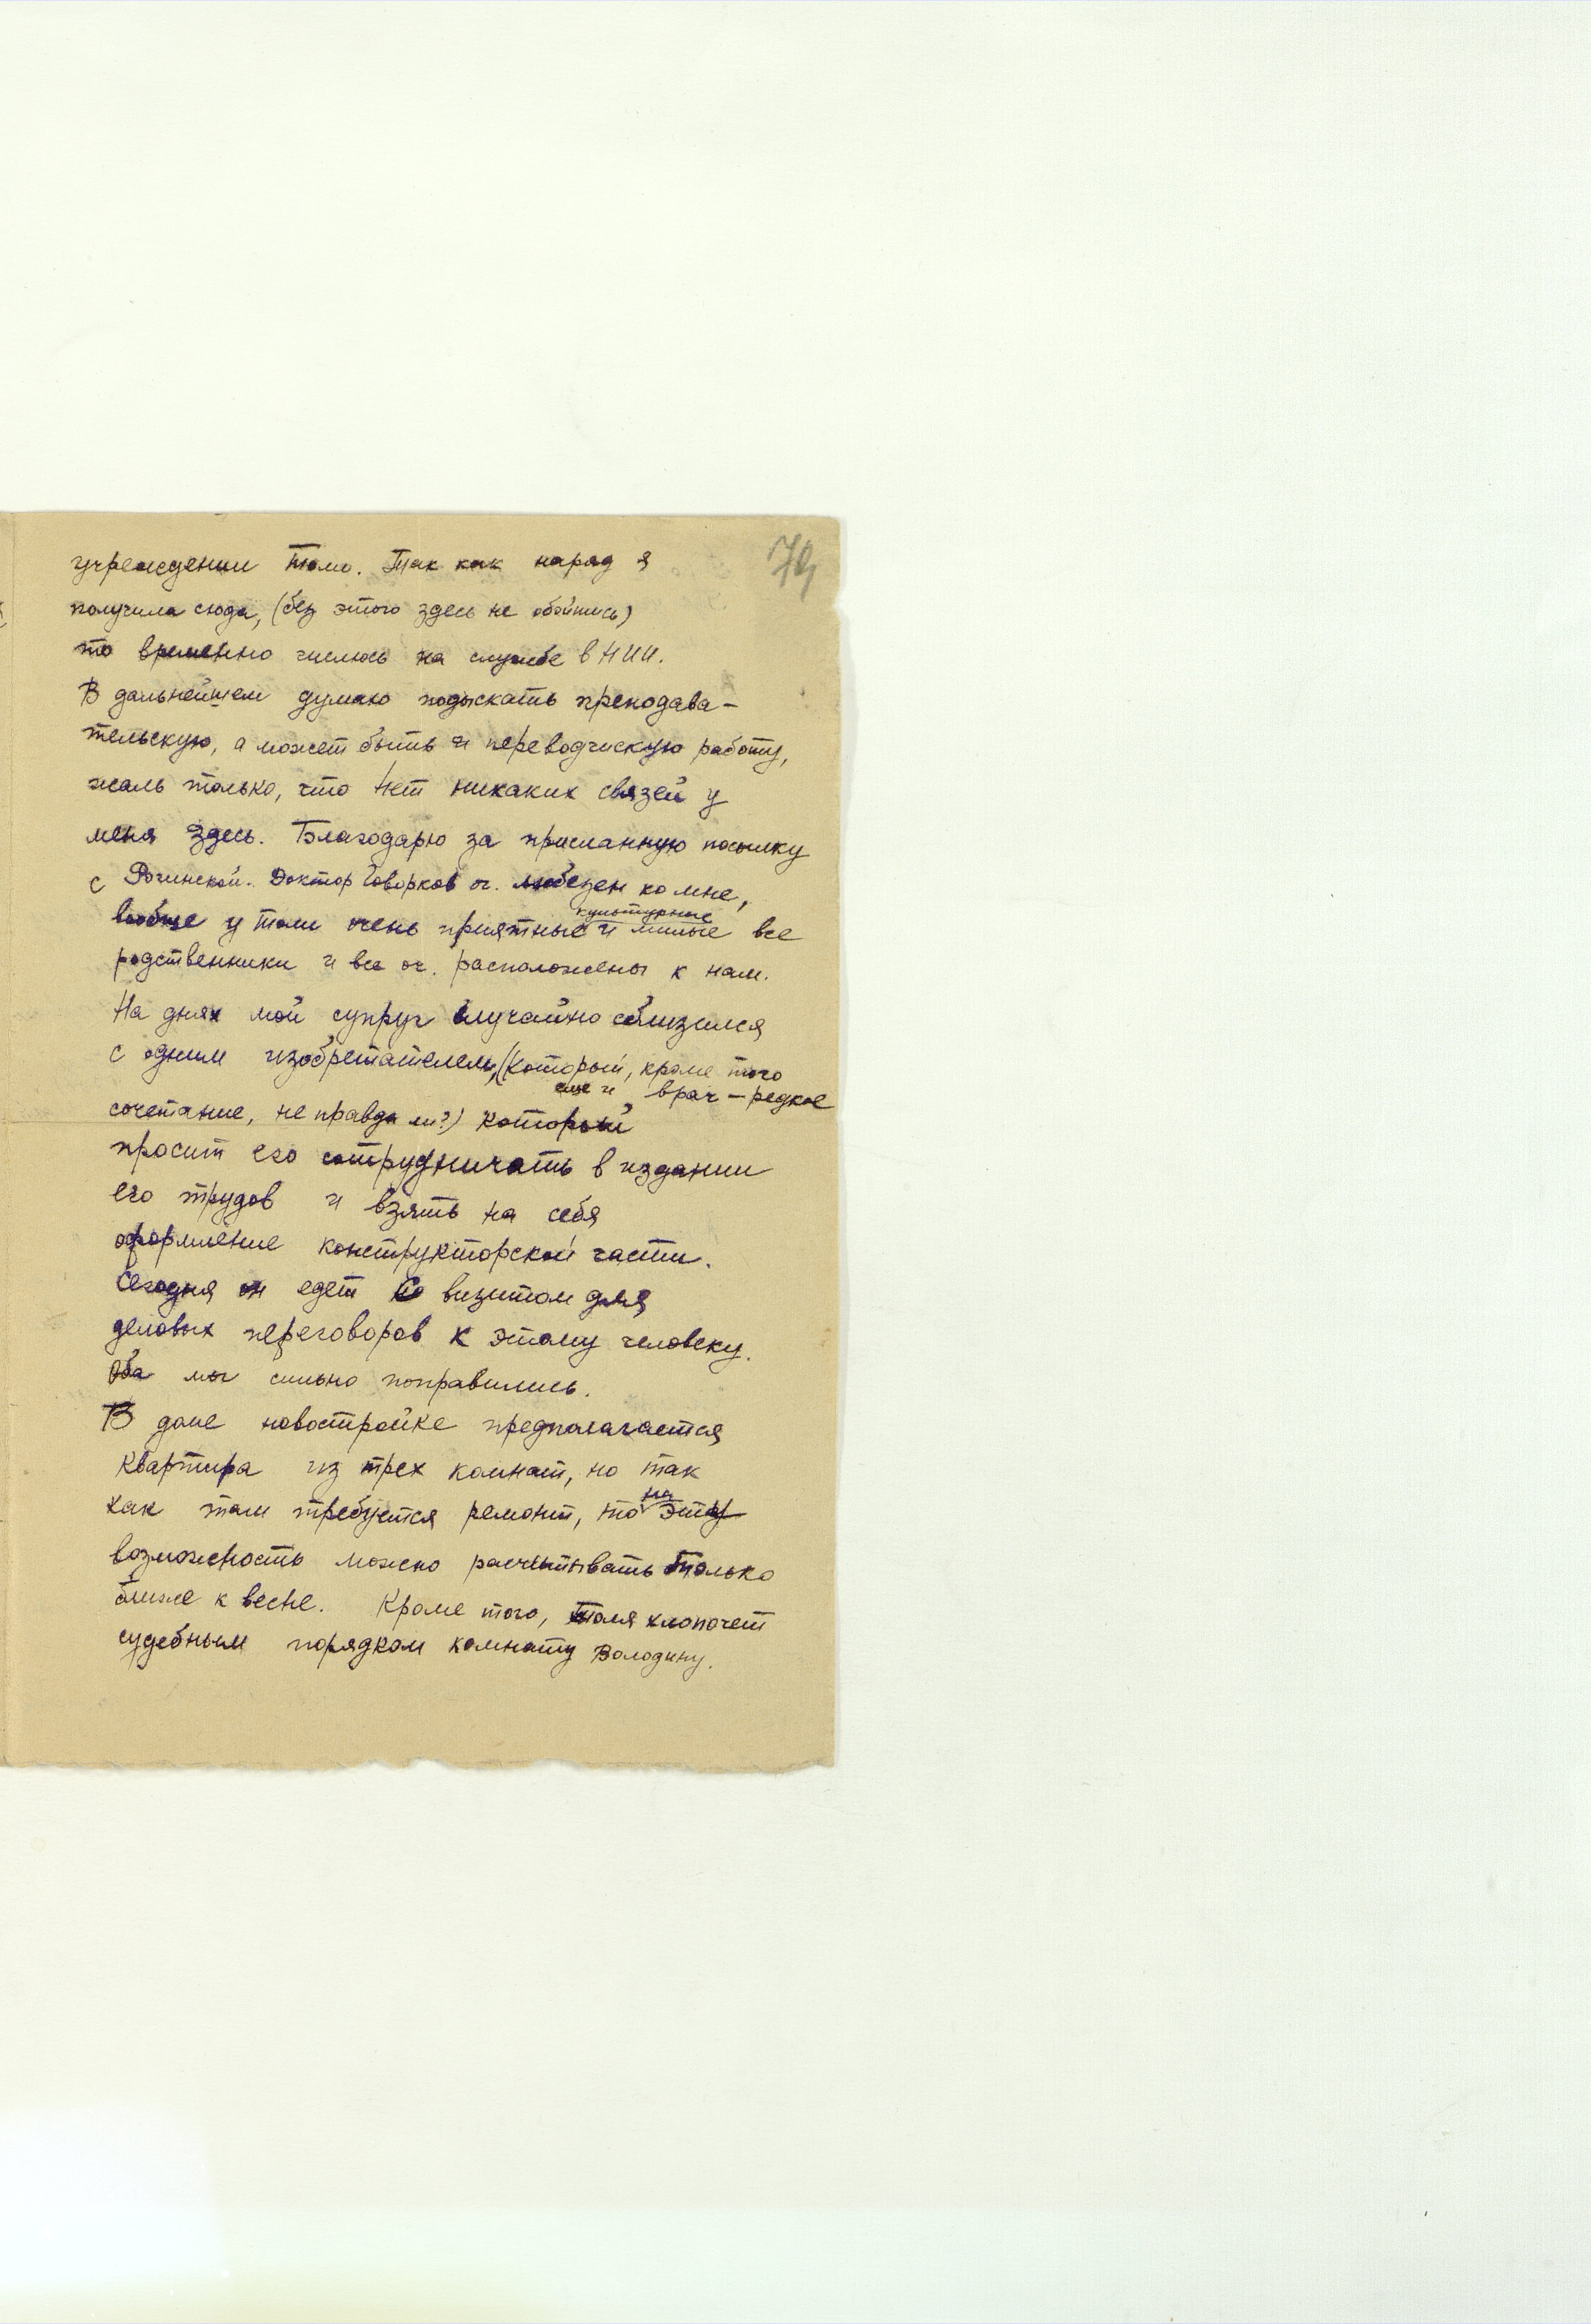 79
учреждении Толи. Так как наряд я
получила сюда, (без этого здесь не обойтись)
то временно числюсь на службе в НИИ.
В дальнейшем думаю подыскать преподава-
тельскую, а может быть и переводческую работу,
жаль только, что нет никаких связей у
меня здесь. Благодарю за присланную посылку
с Рогинской. Доктор Говорков оч. любезен ко мне,
вообще у Толи очень приятные культурные и милые все
родственники и все оч. расположены к нам.
На днях мой супруг случайно сблизился
с одним изобретателем, (который, кроме того
еще и врач – редкое
сочетание, не правда ли?) который
просит его сотрудничать в издании
его трудов и взять на себя
оформление конструкторской части.
Сегодня он едет с визитом для
деловых переговоров к этому человеку.
Оба мы сильно поправились.
В доме новостройке предполагается
квартира из трех комнат, но так
как там требуется ремонт, то на эту
возможность можно расчитывать только
ближе к весне. Кроме того, Толя хлопочет
судебным порядком комнату Володину.